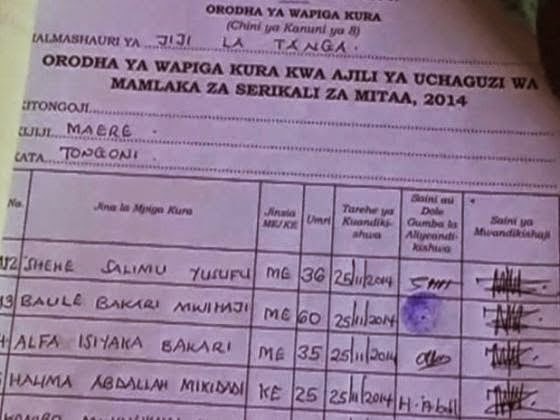 ORODHA YA WAPIGA KURA
(Chini ya Kanuni ya 8)
HALMASHAURI YA JIJI LA TANGA.
ORODHA YA WAPIGA KURA KWA AJILI YA UCHAGUZI WA
MAMLAKA ZA SERIKALI ZA MITAA, 2014
KITONGOJI
KIJIJI MAERE.
KATA TONGONI.
No. Jina la Mpiga Kura Jinsia ME/KE Umri Tarehe ya Kuandikishwa Saini au Dole Gumba la Aliyeandikishwa Saini ya Mwandikishaji
12 SHEHE SALIMU YUSUFU ME 36 25/11/2014
13 BAULE BAKARI MWIHAJI ME 60 25/11/2014
ALFA ISIYAKA BAKARI ME 35 25/11/2014
HALIMA ABDALLAH MIKIDADI KE 25 25/11/2014